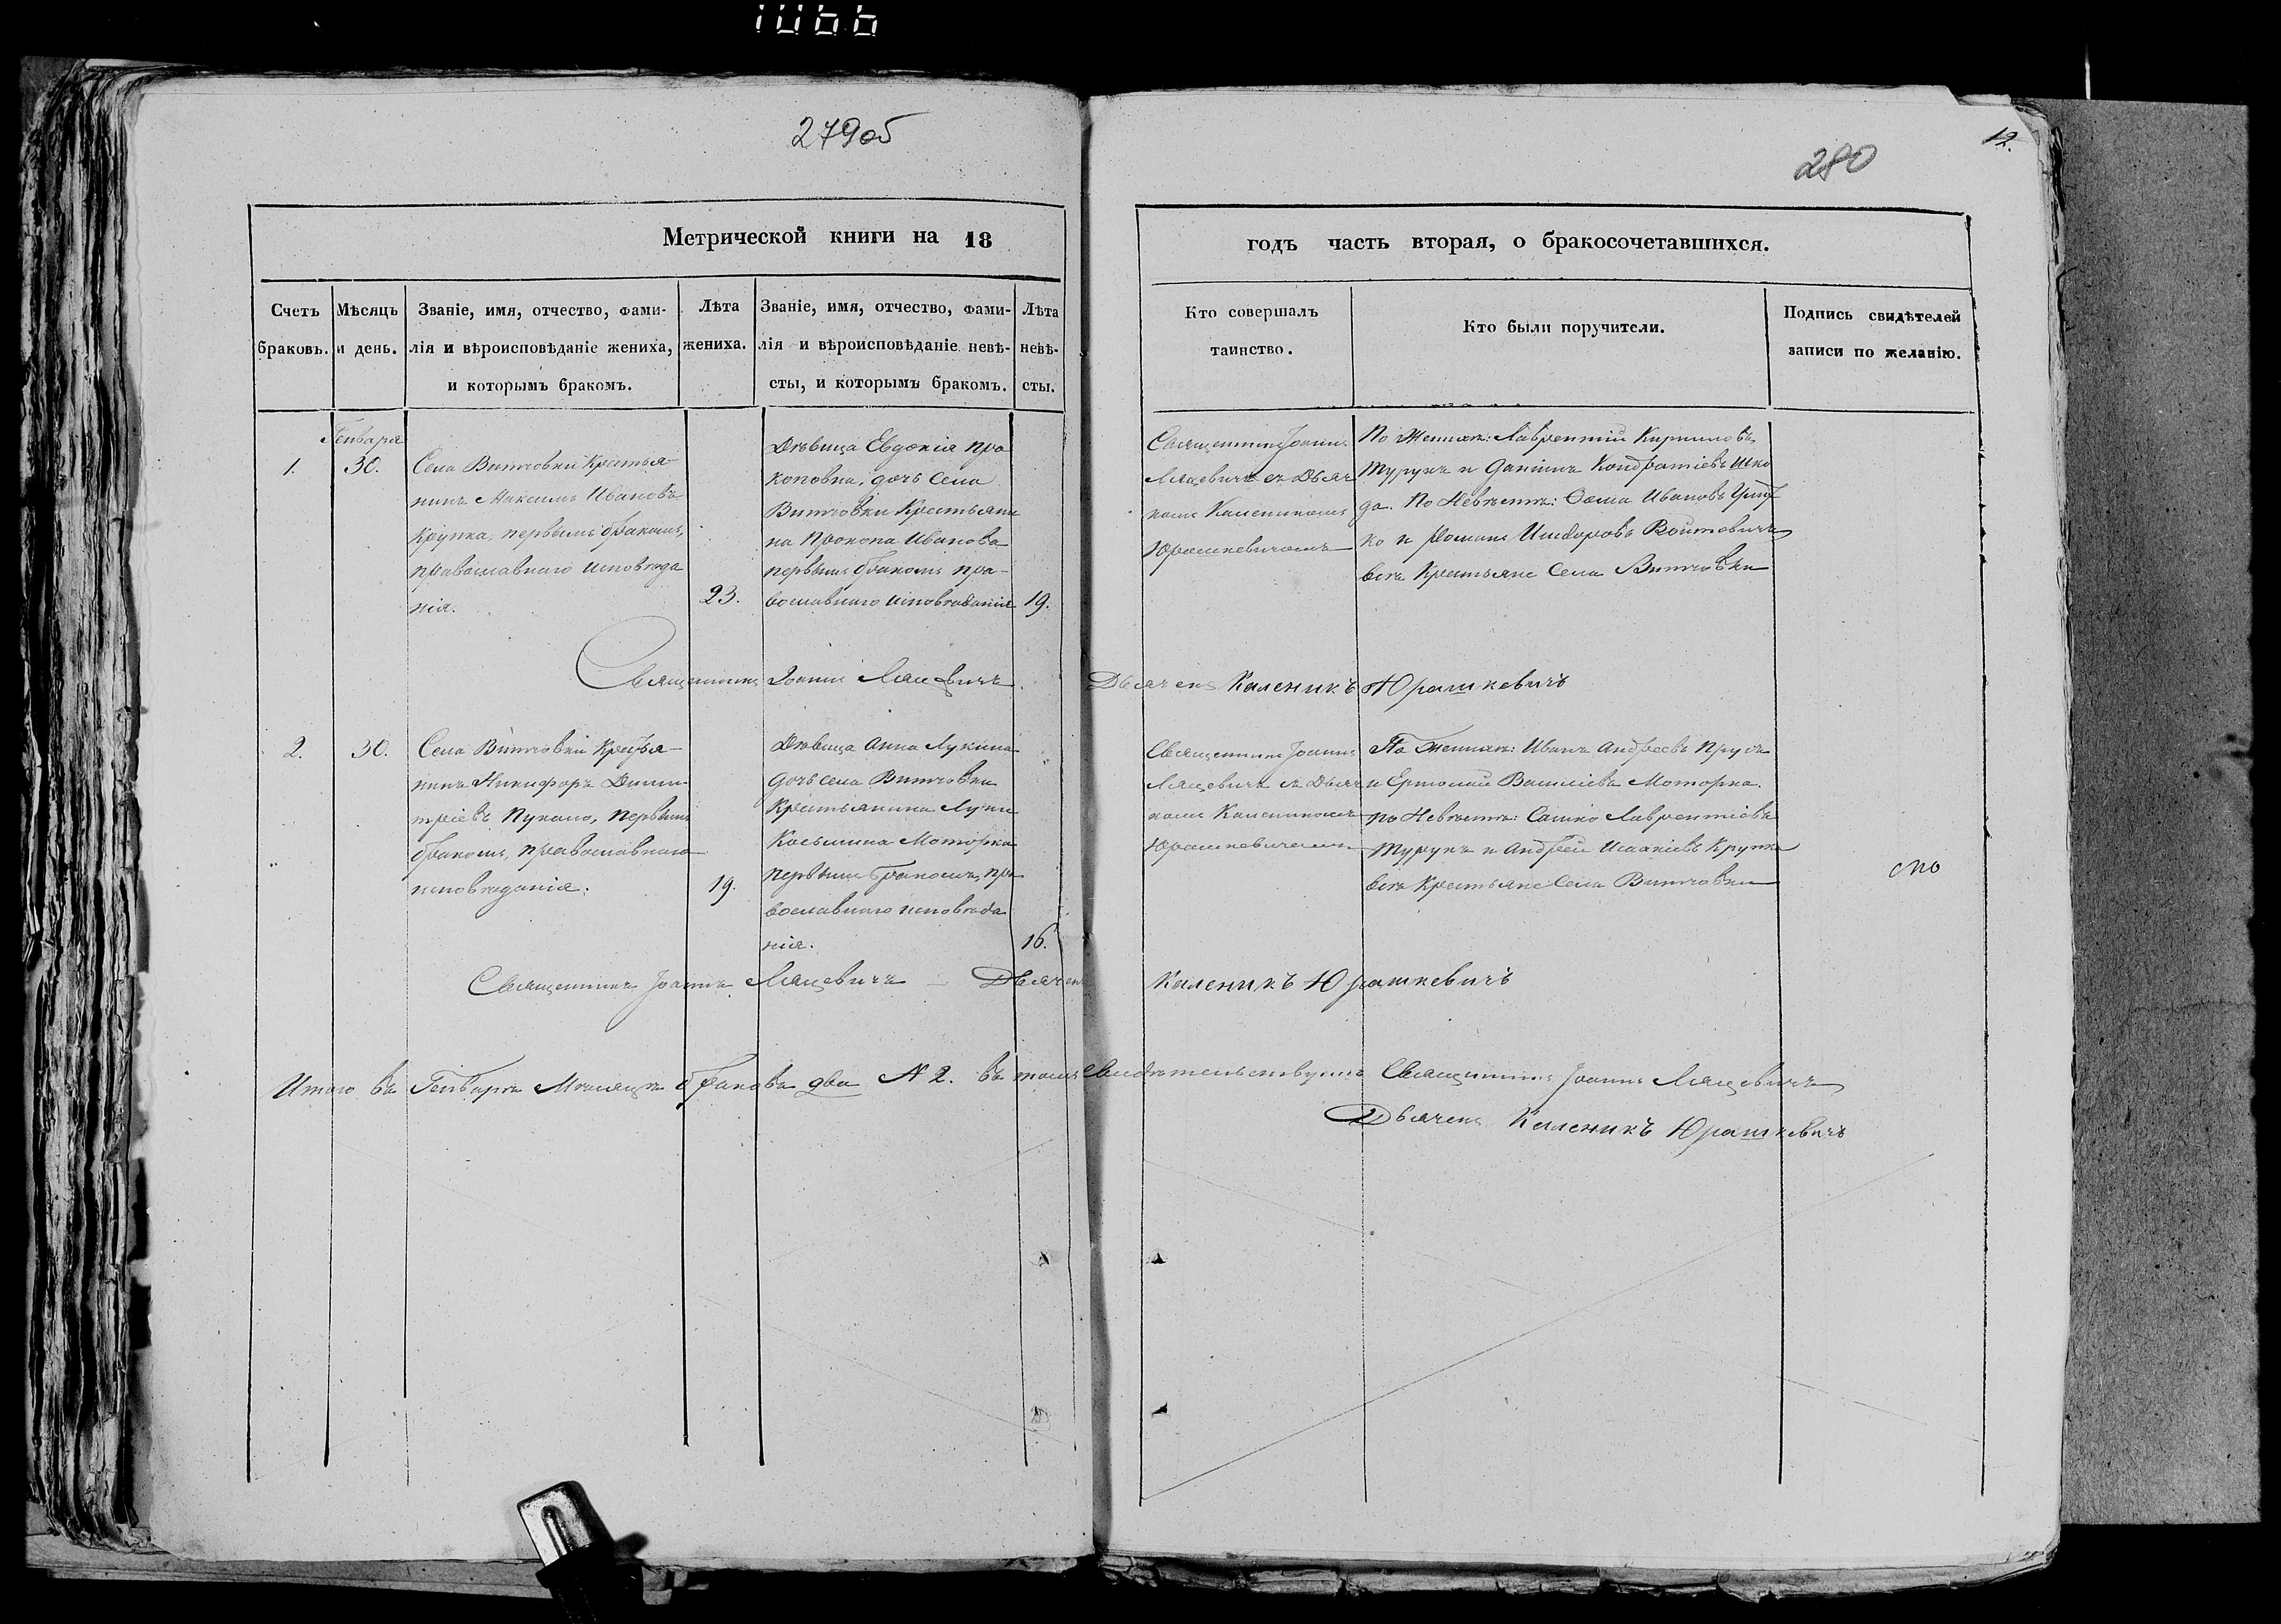 1066
279об
280
12.
Метрической книги на 18
годъ часть вторая, о бракосочетавшихся.
Счетъ браковъ.
Мѣсяцъ и день.
Званіе, имя, отчество, фами-
лія и вѣроисповѣданіе жениха,
и которымъ бракомъ.
Лѣта
жениха.
Званіе, имя, отчество, фами-
лія и вѣроисповѣданіе невѣ-
сты, и которымъ бракомъ.
Лѣта
невѣ-
сты.
Кто совершалъ
таинство.
Кто были поручители.
Подпись свидѣтелей
записи по желанію.
1.
Генваря
30.
Села Витчовки Крестья-
нинъ Максимъ Ивановъ
Крупка, первымъ бракомъ,
православнаго исповѣда
нія.
23.
Дѣвица Евдокія Про
коповна, дочь Села
Витчовки Крестьяни
на Прокопа Иванова
первымъ бракомъ пра-
вославнаго исповѣданія
19.
Священникъ Іоаннъ
Ляцевичъ съ Дьяч
комъ Калеником
Юрашкевичомъ
По Женихѣ: Лаврентій Кирилловъ
Турукъ и Даніилъ Кондратіевъ Шко
да. По Невѣстѣ: Ѳома Ивановъ
ко и Романъ Исидоровъ Войтовичъ
всѣ Крестьяне Села Витчовки
Священникъ Іоаннъ Ляцевичъ. Дьячекъ Каленикъ Юрашкевичъ
2.
30.
Села Витчовки Крестья-
нинъ Никифоръ Дими-
тріевъ Пукало, первымъ
бракомъ, православнаго
исповѣданія.
19.
Дѣвица Анна Лукина
дочь села Витчовки
Крестьянина Луки
Косьмина Моторка
первымъ бракомъ, пра
вославнаго исповѣда
нія.
16.
Священникъ Іоаннъ
Ляцевичъ съ Дьяч
комъ Калеником
Юрашкевичемъ
По Женихѣ: Иванъ Андреевъ Прусъ
и Ермолай Василіевъ Моторка.
по Невѣстѣ: Сашко Лаврентіевъ
Турукъ и Андрей Исаакіевъ Крупка
всѣ Крестьяне Села Витчовки
Священникъ Іоаннъ Ляцевичъ — Дьячекъ Каленикъ Юрашкевичъ
Итого въ Генварѣ Мѣсяцѣ браковъ два № 2. въ томъ Свидѣтельствуемъ Священникъ Іоаннъ Ляцевичъ
Дьячекъ Каленикъ Юрашкевичъ